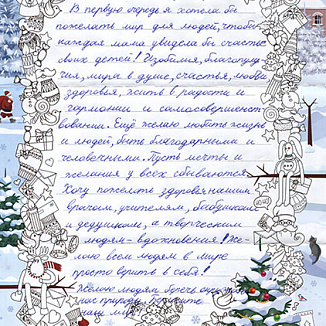 В первую очередь я хотела бы
пожелать мир для людей, чтобы
каждая мама увидела бы счастье
своих детей! Изобилия, благополу-
чия, мира в душе, счастья, любви
здоровья, жить в радости и
гармонии и самосовершенст
вовании. Ещё желаю любить жизнь
и людей, быть благодарными и
человечными. Пусть мечты и
желания у всех сбываются.
Хочу пожелать здоровья нашим
врачам, учителям, бабушкам
и дедушкам, а творческим
людям - вдохновения! Же-
лаю всем людям в мире
просто верить в себя!
Желаю людям беречь
нас природу,
наш мир!